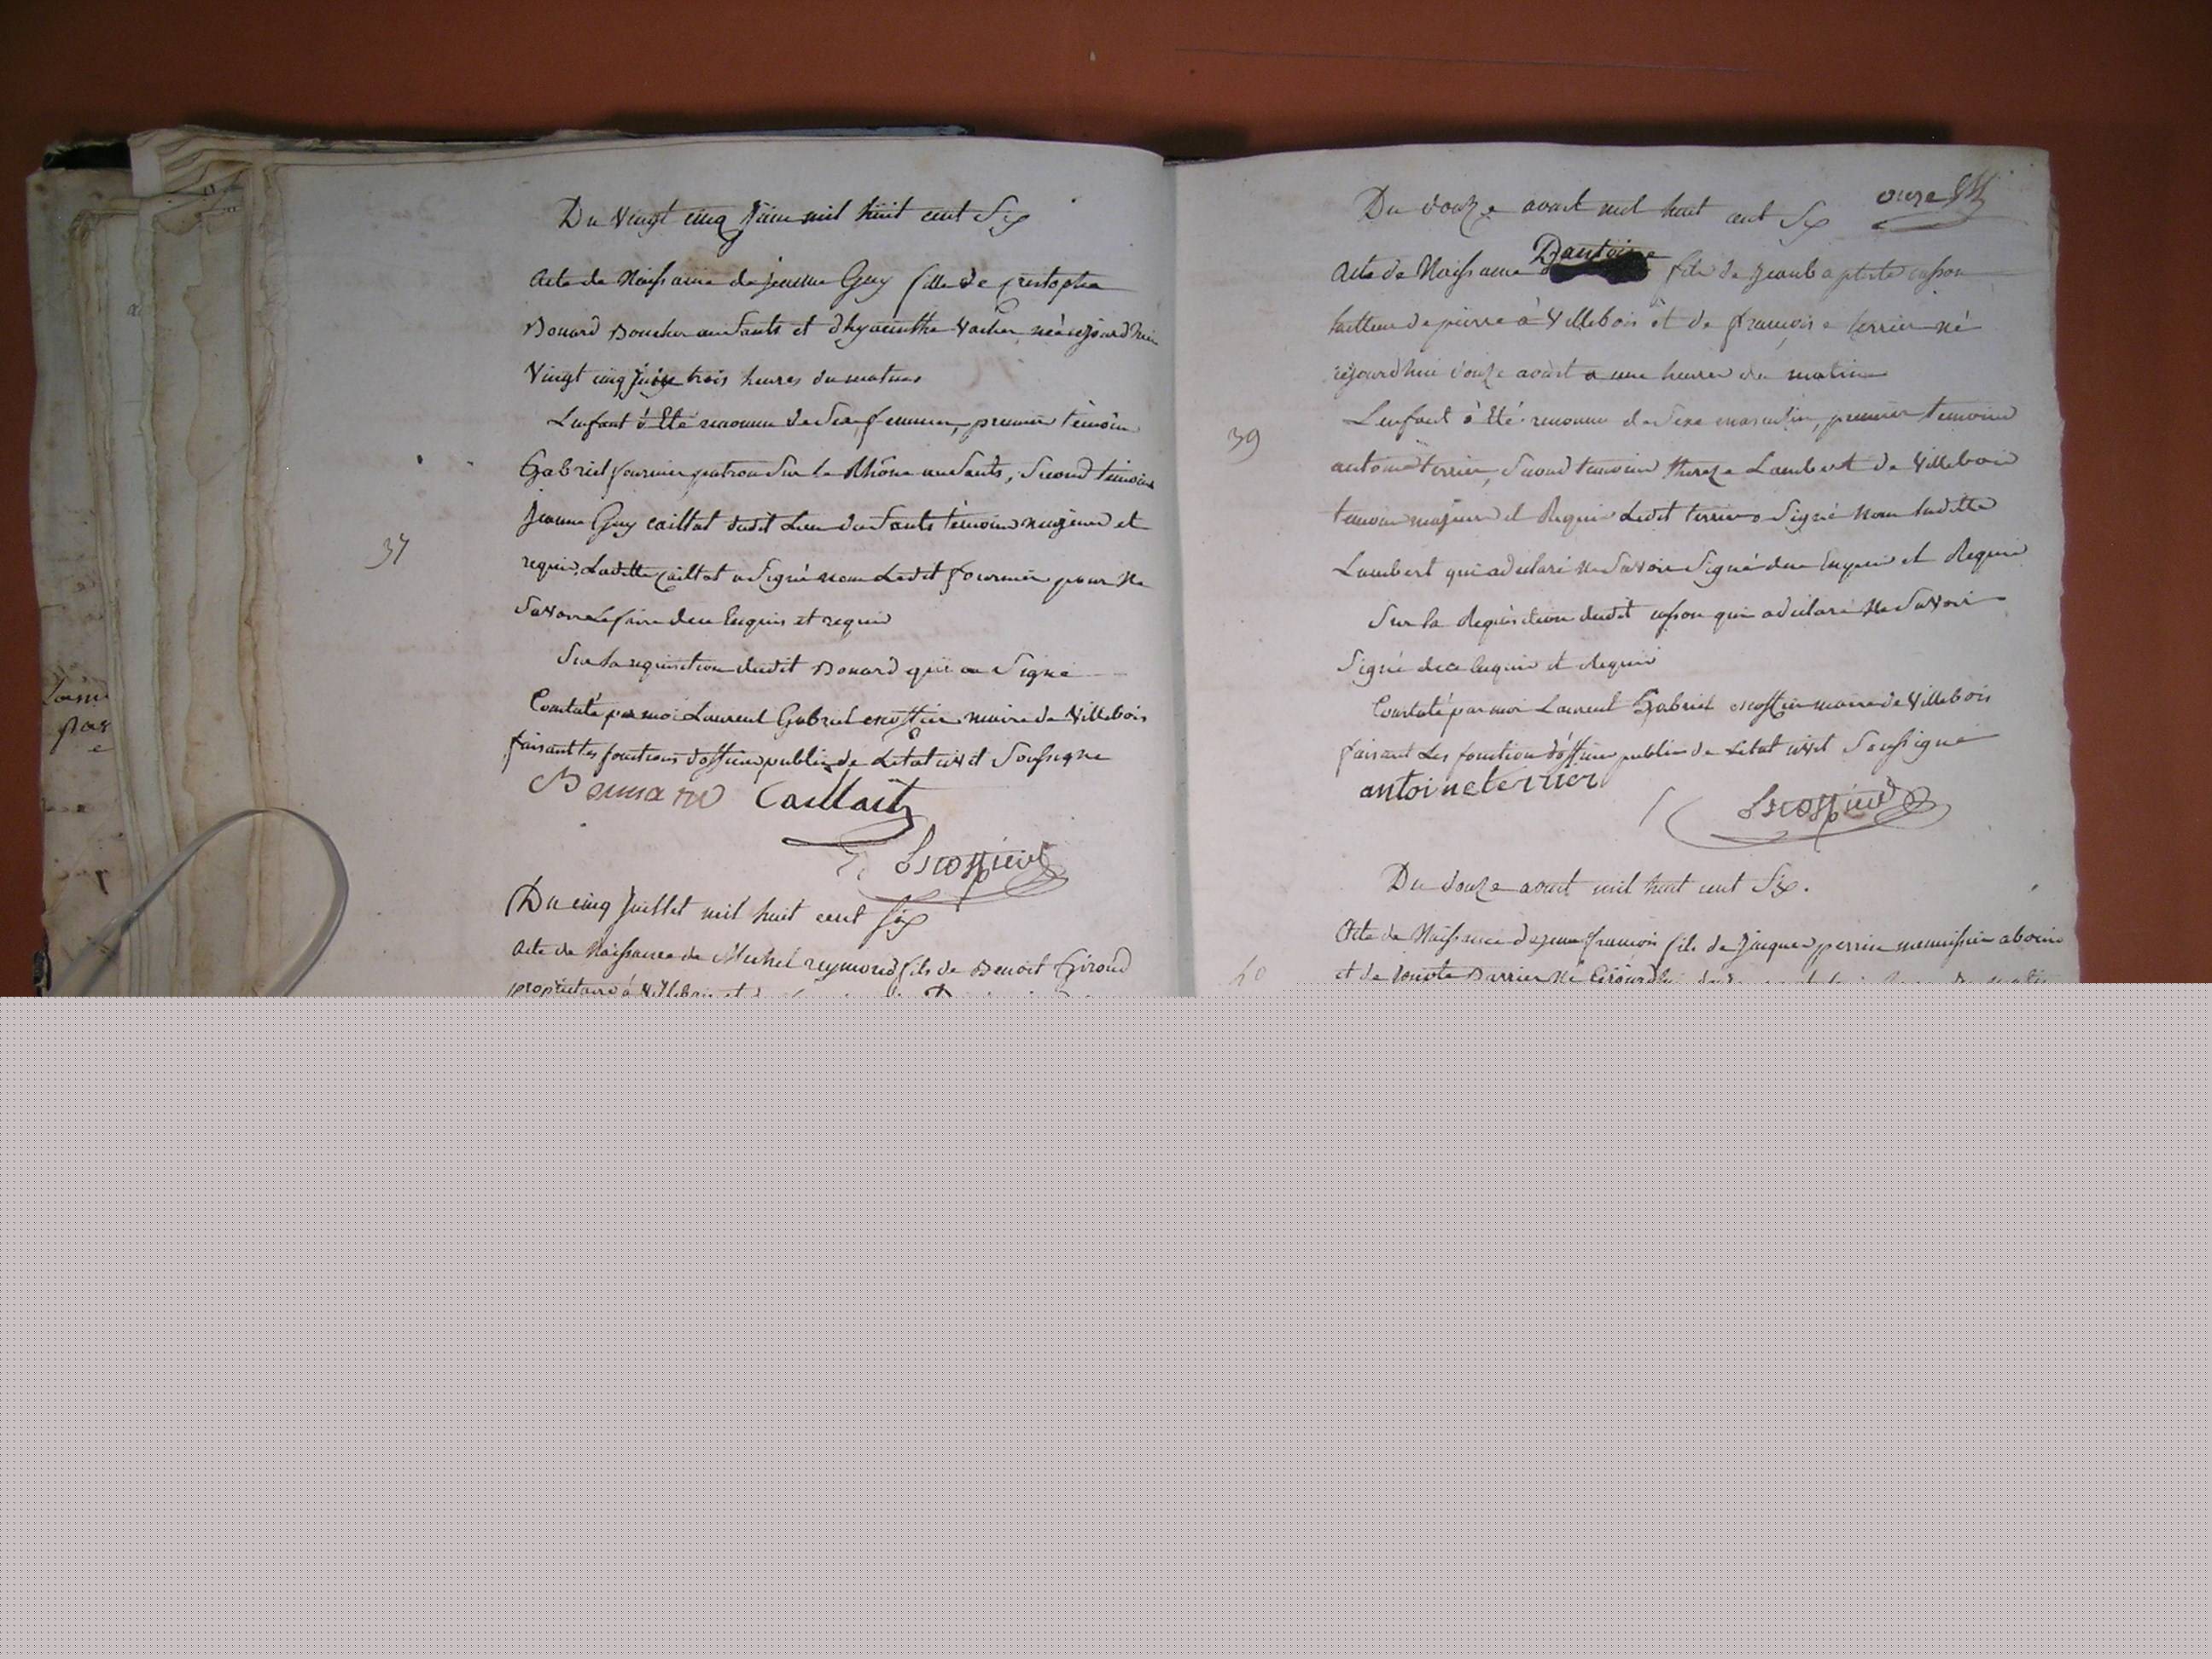 Du Vingt cinq juin mil huit cent Six
acte de Naissance de jeanne Guy fille de cristophe
Bonard Boucher aux Sauts et d'hyacinthe Vacher née cejourdhui
Vingt cinq juin trois heures du matin
L'enfant à été reconnu de Sexe feminin, premier témoin
Gabriel fournier patron Sur le Rhône aux Sauts, Second témoin
jeanne Guy caillat dudit Lieu des Sauts témoins majeurs et
requis. Ladette caillat a Signé non Ledit fournier pour Ne
Savoir Le faire de ce Enquis et requis
Sur la requisition dudit Bonard qui a Signé
Constaté par moi Laurent Gabriel escoffier maire de Villebois
faisant les fonctions d'officier public de Letat civil Soussigné
37
Caillat
Escoffier
Du cinq juillet mil huit cent six
acte de Naissance de Michel reymond fils de Benoit Giroud
propriétaire à Villebois et de
onze
Du douze aoust mil huit cent Six
acte de Naissance D'antoine fils de jean baptiste cusson
tailleur de pierre à Villebois et de françoise terrier né
cejourdhui douze aoust a une heure du matin
L'enfant à été reconnu de Sexe masculin, premier temoin
39
antoine terrier, Second temoin thereze Lambert de Villebois
temoins majeurs et Requis Ledit terrier a Signé non Ladette
Lambert qui a declaré ne Savoir Signé de ce Enquis et Requis
Sur la Requisition dudit cusson qui a declaré Ne Savoir
Signé de ce Enquis et Requis
Constaté par moi Laurent Gabriel escoffier maire de Villebois
faisant Les fonction d'officier public de Letat civil Soussigné
antoine terrier
Escoffier
Du douze aoust mil huit cent Six.
Acte de Naissance de jean françois fils de jacques perrin menuisier a bouis
40
et de Barrier né cejourdhui